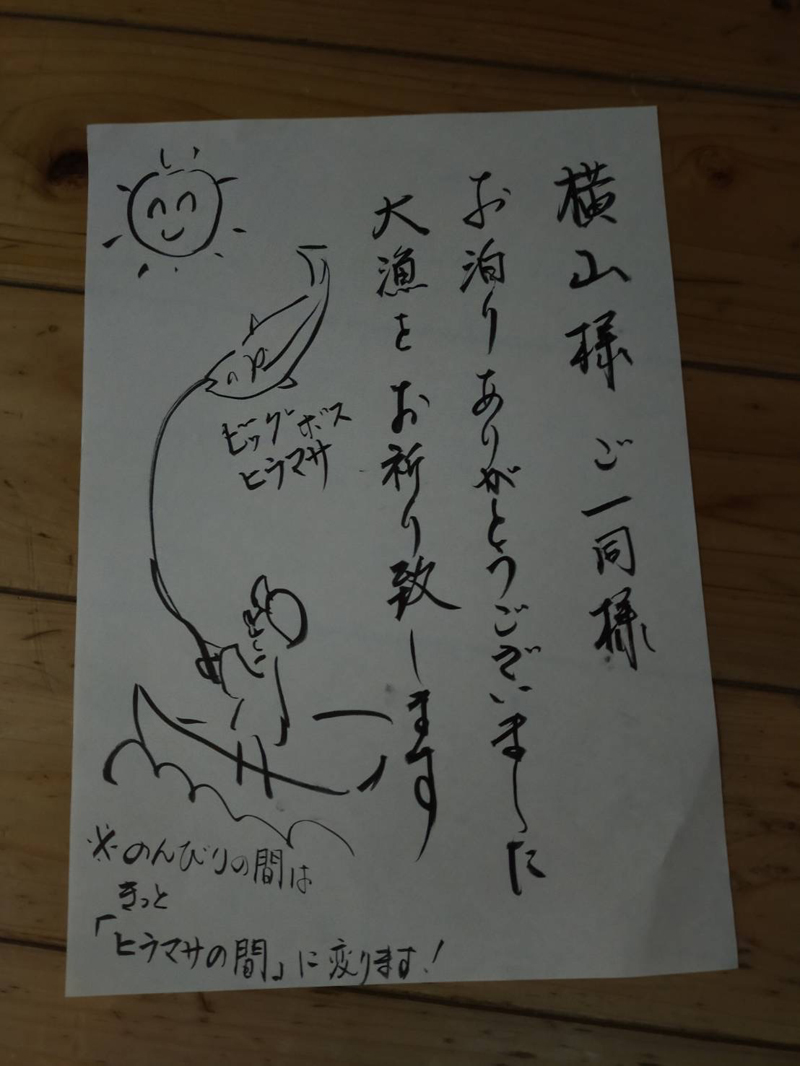 横山様 ご一同様
お泊りありがとうございました
大漁をお祈り致します
ビッグボス
ヒラマサ
※のんびりの間は
きっと
「ヒラマサの間」に変ります!